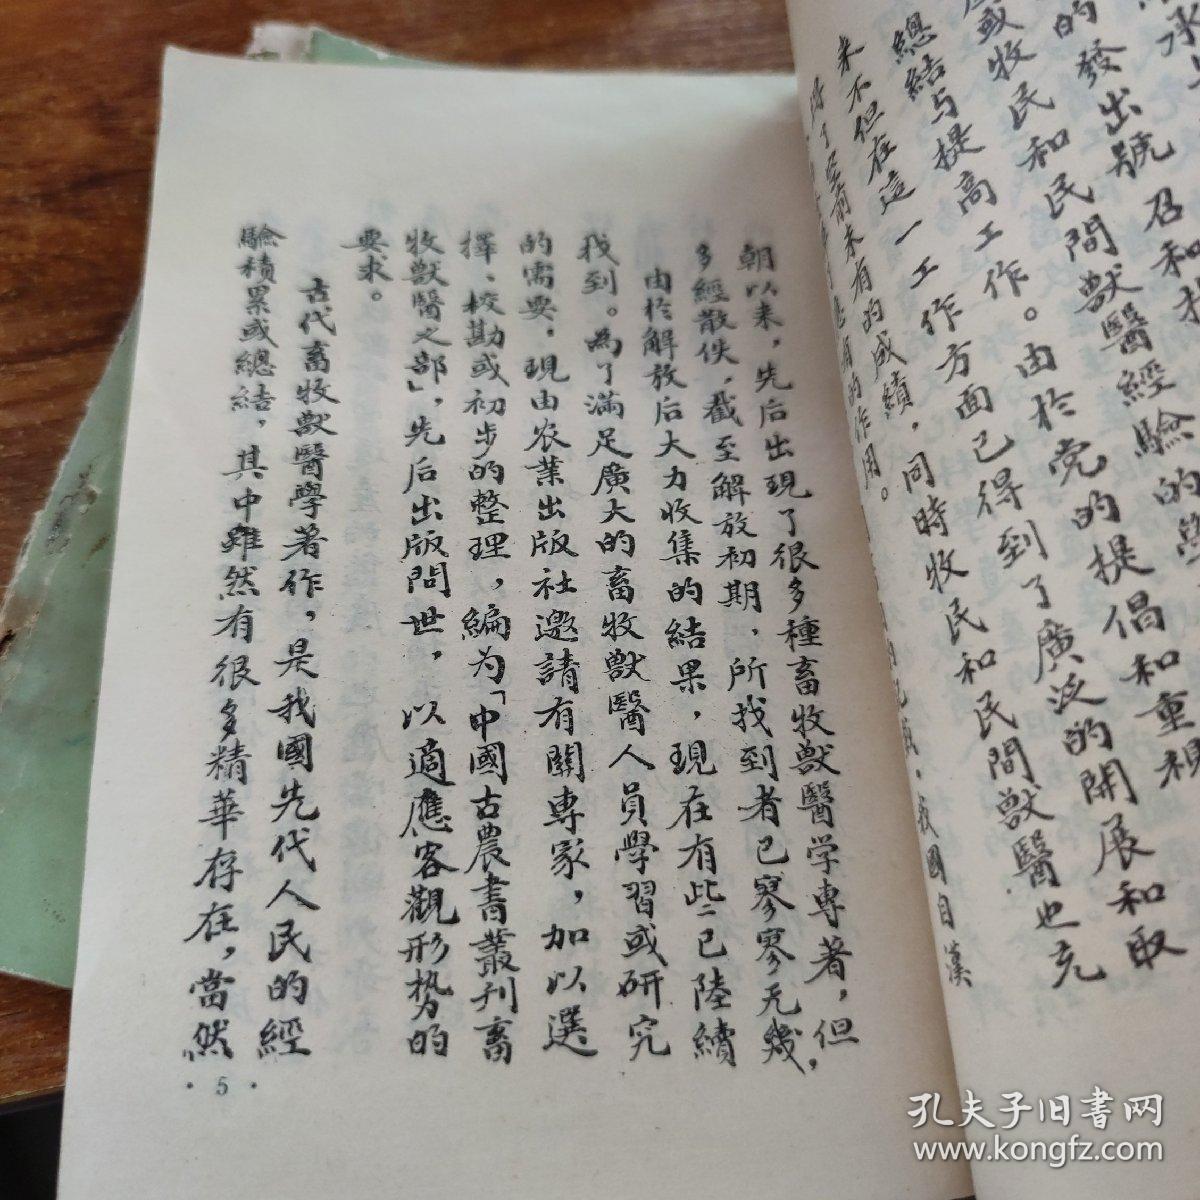 的發出號召和
或牧民和民間獸醫經驗的
總結与提高工作。由於党的提倡和重視
来不但在這一工作方面已得到了廣泛的開展和取
得了空前未有的成績，同時牧民和民間獸醫也充
的作用。
我國自漢
朝以来，先后出現了很多種畜牧獸醫学專著，但
多經散佚，截至解放初期，所找到者已寥寥无幾，
由於解放后大力收集的結果，現在有些已陸續
找到。為了滿足廣大的畜牧獸醫人員學習或研究
的需要，現由农業出版社邀請有關專家，加以選
擇、校勘或初步的整理，編为「中國古農書叢刊畜
牧獸醫之部」，先后出版問世，以適應客觀形势的
要求。
古代畜牧獸醫學著作，是我國先代人民的經
驗積累或總結，其中雖然有很多精華存在，當然
·5·
孔夫子旧書网
www.kongfz.com